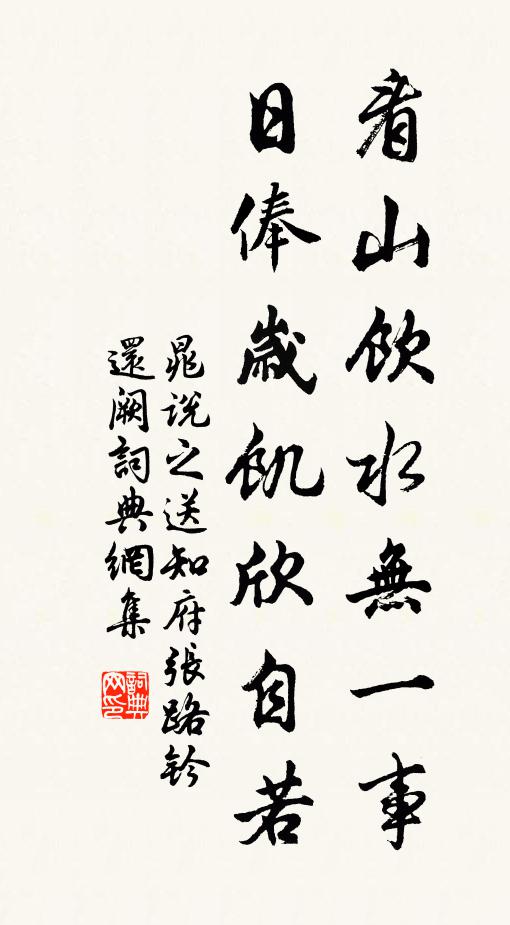 看山飲水無一事
日俸歲飢欣自若
晁說之送知府張路鈐
還闕詞典網集
詞典網印